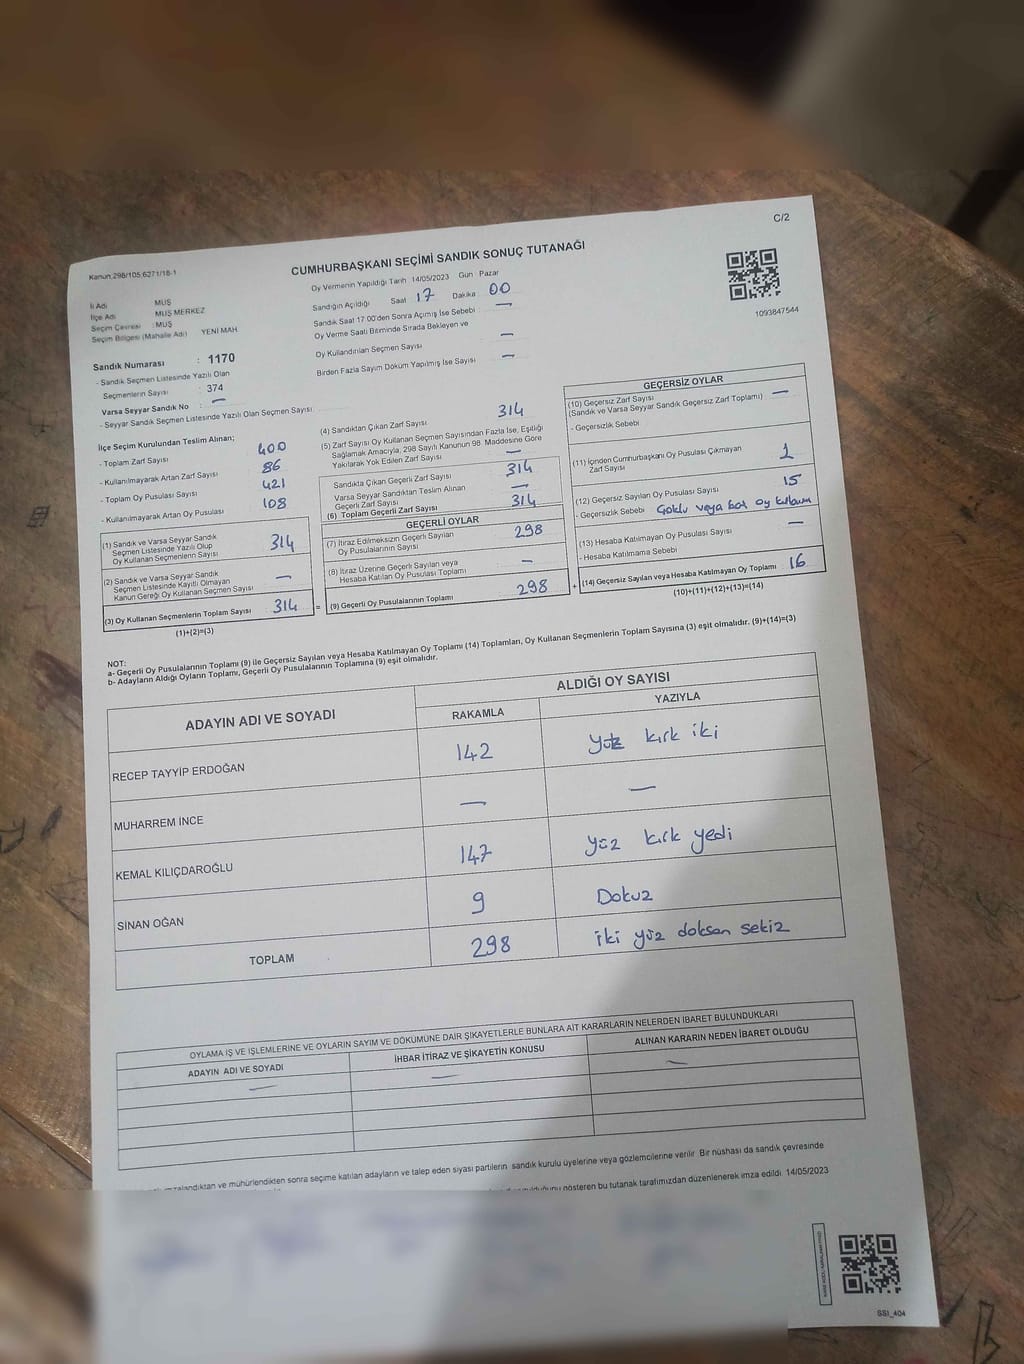 C/2
Kanun:298/105,6271/18-1
CUMHURBAŞKANI SEÇİMİ SANDIK SONUÇ TUTANAĞI
1093847544
İl Adı : MUŞ
İlçe Adı : MUŞ MERKEZ
Seçim Çevresi : MUŞ
Seçim Bölgesi (Mahalle Adı) YENİ MAH
Sandık Numarası : 1170
- Sandık Seçmen Listesinde Yazılı Olan
Seçmenlerin Sayısı : 374
Varsa Seyyar Sandık No : —
- Seyyar Sandık Seçmen Listesinde Yazılı Olan Seçmen Sayısı
Oy Vermenin Yapıldığı Tarih 14/05/2023 Gün Pazar
Sandığın Açıldığı Saat 17 Dakika 00
Sandık Saat 17:00'den Sonra Açılmış İse Sebebi —
Oy Verme Saati Bitiminde Sırada Bekleyen ve
Oy Kullandırılan Seçmen Sayısı —
Birden Fazla Sayım Döküm Yapılmış İse Sayısı —
İlçe Seçim Kurulundan Teslim Alınan;
- Toplam Zarf Sayısı 400
- Kullanılmayarak Artan Zarf Sayısı 86
- Toplam Oy Pusulası Sayısı 421
- Kullanılmayarak Artan Oy Pusulası 108
(1) Sandık ve Varsa Seyyar Sandık
Seçmen Listesinde Yazılı Olup
Oy Kullanan Seçmenlerin Sayısı 314
(2) Sandık ve Varsa Seyyar Sandık
Seçmen Listesinde Kayıtlı Olmayan
Kanun Gereği Oy Kullanan Seçmen Sayısı —
(3) Oy Kullanan Seçmenlerin Toplam Sayısı 314
(1)+(2)=(3)
(4) Sandıktan Çıkan Zarf Sayısı 314
(5) Zarf Sayısı Oy Kullanan Seçmen Sayısından Fazla İse, Eşitliği
Sağlamak Amacıyla, 298 Sayılı Kanunun 98. Maddesine Göre
Yakılarak Yok Edilen Zarf Sayısı —
Sandıkta Çıkan Geçerli Zarf Sayısı 314
Varsa Seyyar Sandıktan Teslim Alınan
Geçerli Zarf Sayısı —
(6) Toplam Geçerli Zarf Sayısı 314
GEÇERLİ OYLAR
(7) İtiraz Edilmeksizin Geçerli Sayılan
Oy Pusulalarının Sayısı 298
(8) İtiraz Üzerine Geçerli Sayılan veya
Hesaba Katılan Oy Pusulası Toplamı —
= (9) Geçerli Oy Pusulalarının Toplamı 298 +
GEÇERSİZ OYLAR
(10) Geçersiz Zarf Sayısı —
(Sandık ve Varsa Seyyar Sandık Geçersiz Zarf Toplamı)
- Geçersizlik Sebebi
(11) İçinden Cumhurbaşkanı Oy Pusulası Çıkmayan
Zarf Sayısı 1
(12) Geçersiz Sayılan Oy Pusulası Sayısı 15
- Geçersizlik Sebebi Çoklu veya boş oy kullanım
(13) Hesaba Katılmayan Oy Pusulası Sayısı —
- Hesaba Katılmama Sebebi
(14) Geçersiz Sayılan veya Hesaba Katılmayan Oy Toplamı 16
(10)+(11)+(12)+(13)=(14)
NOT:
a- Geçerli Oy Pusulalarının Toplamı (9) ile Geçersiz Sayılan veya Hesaba Katılmayan Oy Toplamı (14) Toplamları, Oy Kullanan Seçmenlerin Toplam Sayısına (3) eşit olmalıdır. (9)+(14)=(3)
b- Adayların Aldığı Oyların Toplamı, Geçerli Oy Pusulalarının Toplamına (9) eşit olmalıdır.
ADAYIN ADI VE SOYADI
ALDIĞI OY SAYISI
RAKAMLA YAZIYLA
RECEP TAYYİP ERDOĞAN 142 yüz kırk iki
MUHARREM İNCE — —
KEMAL KILIÇDAROĞLU 147 yüz kırk yedi
SİNAN OĞAN 9 Dokuz
TOPLAM 298 iki yüz doksan sekiz
OYLAMA İŞ VE İŞLEMLERİNE VE OYLARIN SAYIM VE DÖKÜMÜNE DAİR ŞİKAYETLERLE BUNLARA AİT KARARLARIN NELERDEN İBARET BULUNDUKLARI
ADAYIN ADI VE SOYADI İHBAR İTİRAZ VE ŞİKAYETİN KONUSU ALINAN KARARIN NEDEN İBARET OLDUĞU
— — —
mühürlendikten sonra seçime katılan adayların ve talep eden siyasi partilerin sandık kurulu üyelerine veya gözlemcilerine verilir Bir nüshası da sandık çevresinde
gösteren bu tutanak tarafımızdan düzenlenerek imza edildi 14/05/2023
SSI_404